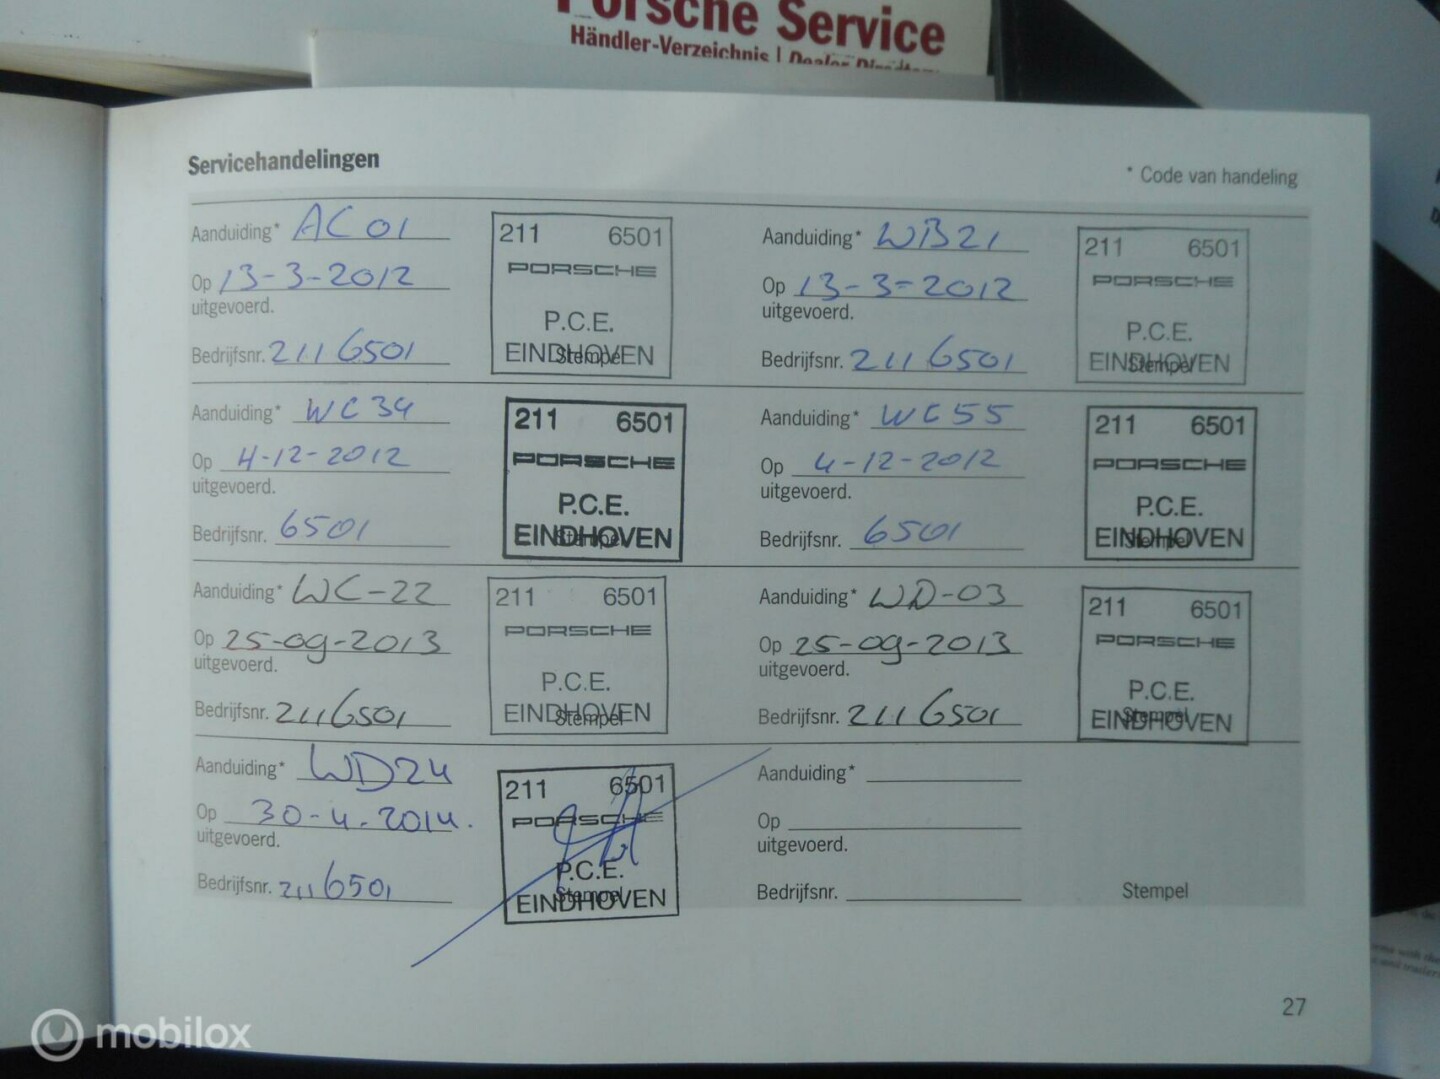 Porsche Service
Händler-Verzeichnis | Dealer Directory
Servicehandelingen
* Code van handeling
Aanduiding* AC01
Op 13-3-2012
uitgevoerd.
Bedrijfsnr. 2116501
211 6501
PORSCHE
P.C.E.
EINDHOVEN
Stempel
Aanduiding* WB21
Op 13-3-2012
uitgevoerd.
Bedrijfsnr. 2116501
211 6501
PORSCHE
P.C.E.
EINDHOVEN
Stempel
Aanduiding* WC34
Op 4-12-2012
uitgevoerd.
Bedrijfsnr. 6501
211 6501
PORSCHE
P.C.E.
EINDHOVEN
Stempel
Aanduiding* WC55
Op 4-12-2012
uitgevoerd.
Bedrijfsnr. 6501
211 6501
PORSCHE
P.C.E.
EINDHOVEN
Stempel
Aanduiding* WC-22
Op 25-09-2013
uitgevoerd.
Bedrijfsnr. 2116501
211 6501
PORSCHE
P.C.E.
EINDHOVEN
Stempel
Aanduiding* WD-03
Op 25-09-2013
uitgevoerd.
Bedrijfsnr. 2116501
211 6501
PORSCHE
P.C.E.
EINDHOVEN
Stempel
Aanduiding* WD24
Op 30-4-2014.
uitgevoerd.
Bedrijfsnr. 2116501
211 6501
PORSCHE
P.C.E.
EINDHOVEN
Stempel
Aanduiding*
Op
uitgevoerd.
Bedrijfsnr.
Stempel
27
mobilox